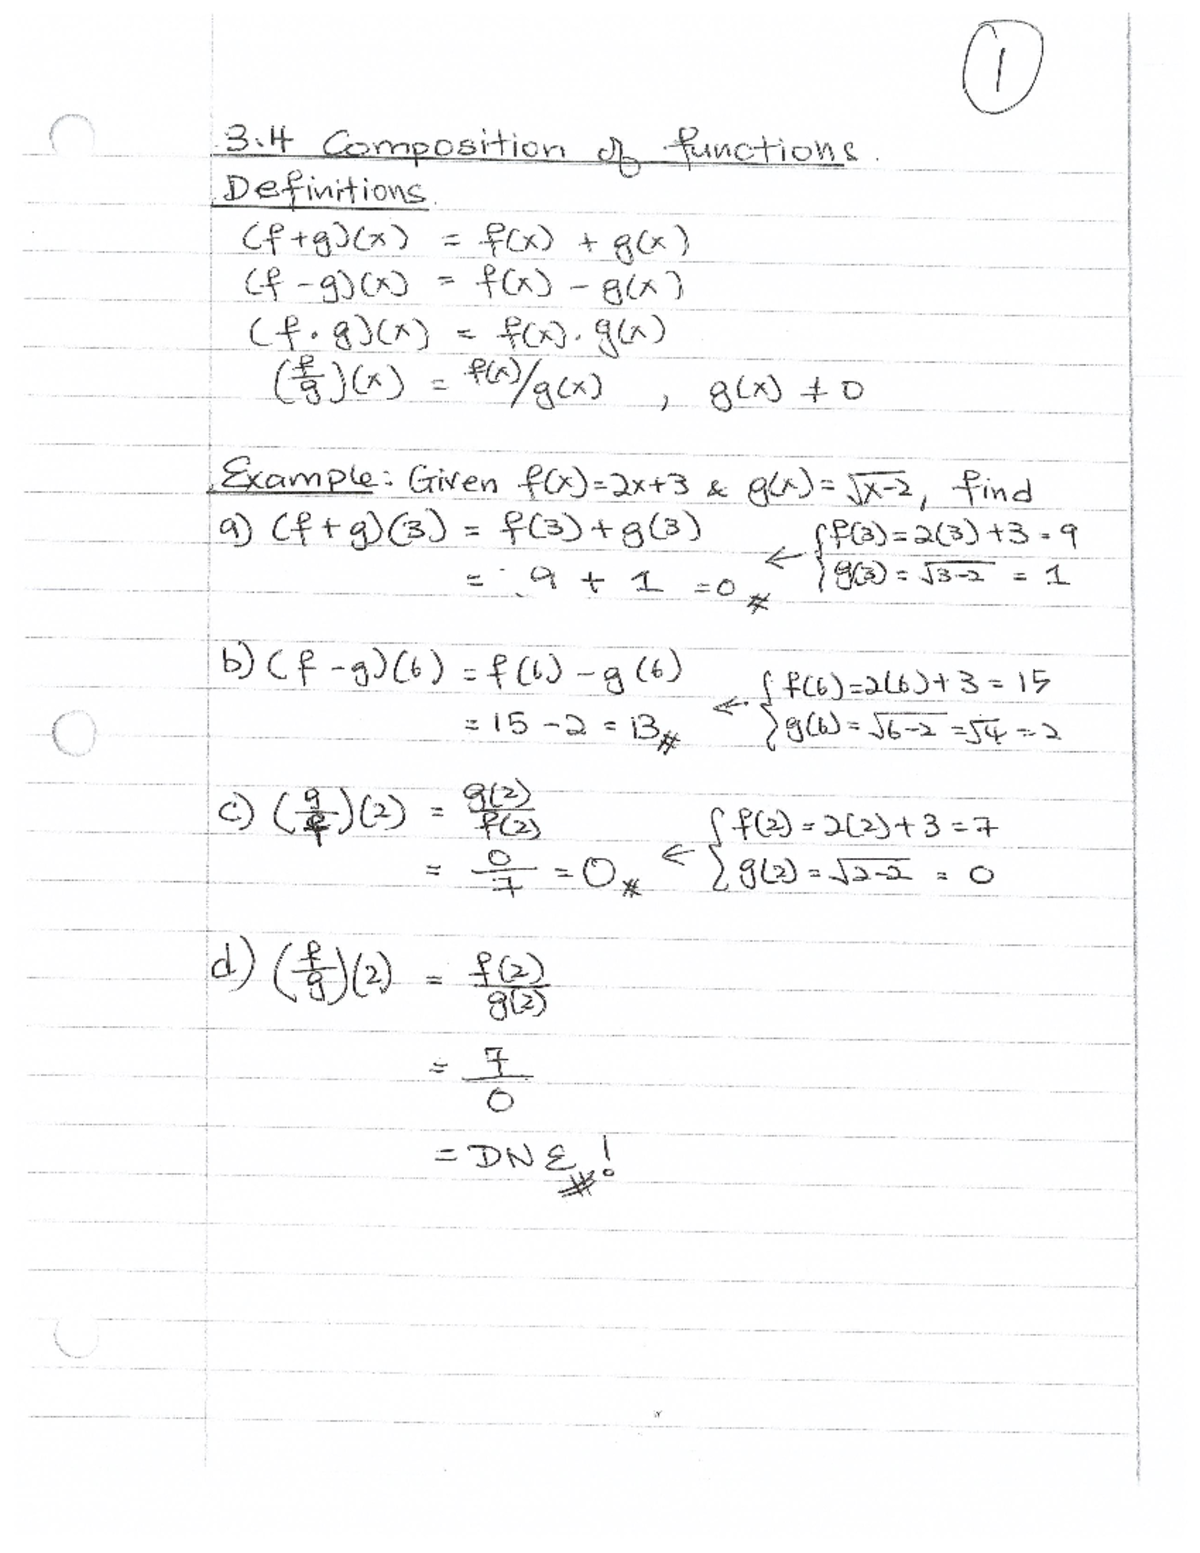 1
3.4 Composition of functions.
Definitions.
(f+g)(x) = f(x) + g(x)
(f-g)(x) = f(x) - g(x)
(f·g)(x) = f(x)·g(x)
(f/g)(x) = f(x)/g(x) , g(x) ≠ 0
Example: Given f(x)=2x+3 & g(x)=√x-2, find
a) (f+g)(3) = f(3)+g(3) ← { f(3)=2(3)+3=9
= 9 + 1 =0 # g(3)=√3-2 = 1
b) (f-g)(6) = f(6)-g(6) ← { f(6)=2(6)+3=15
= 15-2 = 13 # g(6)=√6-2=√4=2
c) (g/f)(2) = g(2)/f(2) ← { f(2)=2(2)+3=7
= 0/7 = 0 # g(2)=√2-2 = 0
d) (f/g)(2) = f(2)/g(2)
= 7/0
= DNE #!